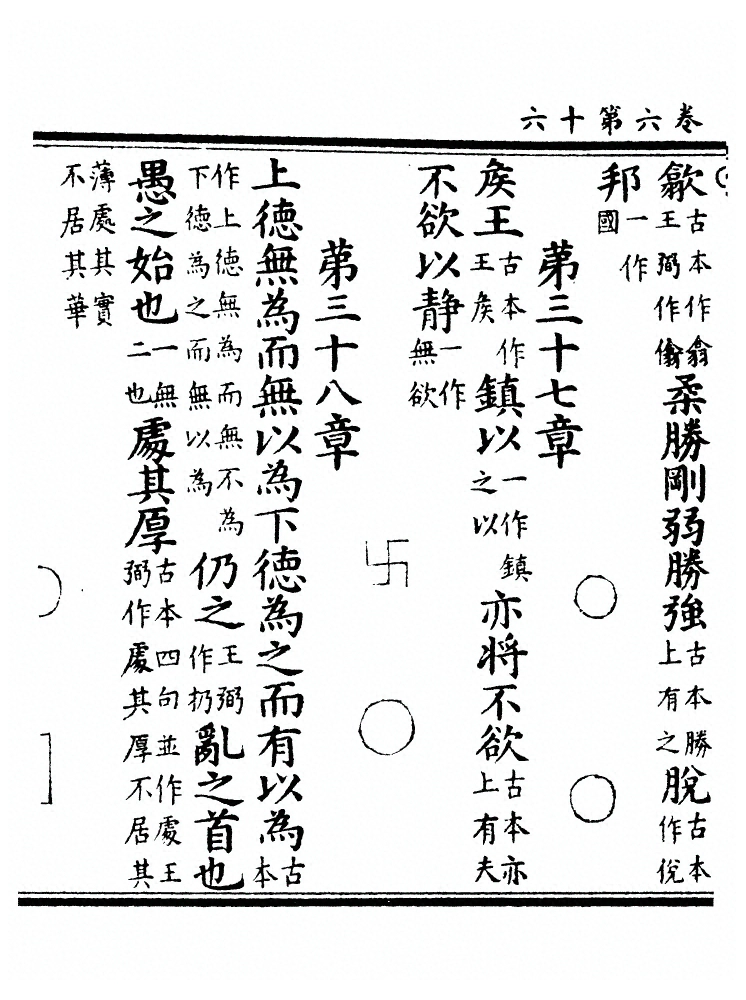 卷六第十六
歙古本作翕王弼作㒆柔勝剛弱勝強古本勝上有之脫古本作侻
邦一作國
第三十七章
矦王古本作王矦鎮以一作鎮之以亦将不欲古本亦上有夫
不欲以静一作無欲
第三十八章
上德無為而無以為下德為之而有以為古本
作上德無為而無不為下德為之而無以為仍之王弼作扔亂之首也
愚之始也一無二也處其厚古本四句並作處王弼作處其厚不居其
薄處其實不居其華